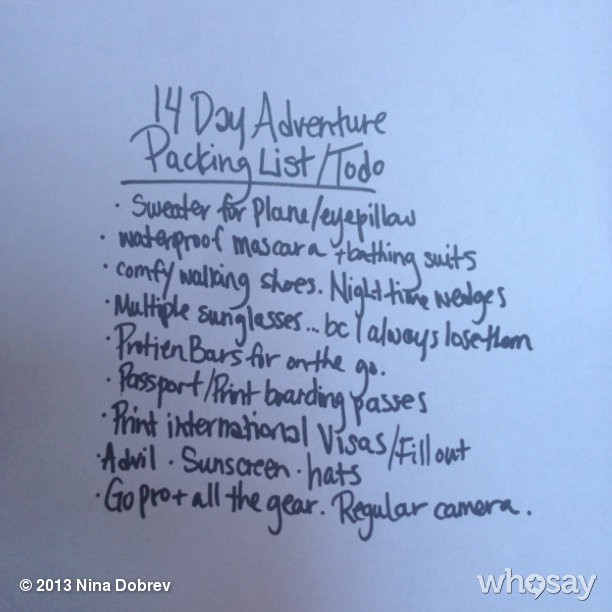 14 Day Adventure
Packing List/Todo
· Sweater for Plane/eyepillow
· waterproof mascara + bathing suits
· comfy walking shoes. Night time wedges
· Multiple sunglasses... bc I always lose them
· Protien Bars for on the go.
· Passport/Print boarding passes
· Print international Visas/Fill out
· Advil · Sunscreen · hats
· Go pro + all the gear. Regular camera.
© 2013 Nina Dobrev
whosay